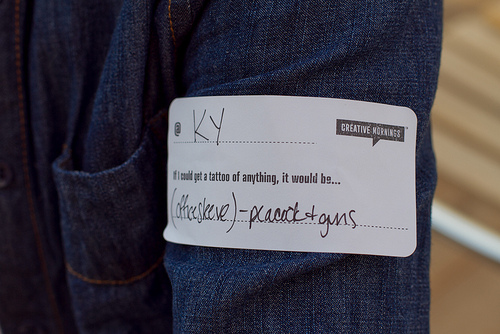 @ KY
CREATIVE MORNINGS
If i could get a tattoo of anything, it would be...
(office sleeve) - peacock + guns